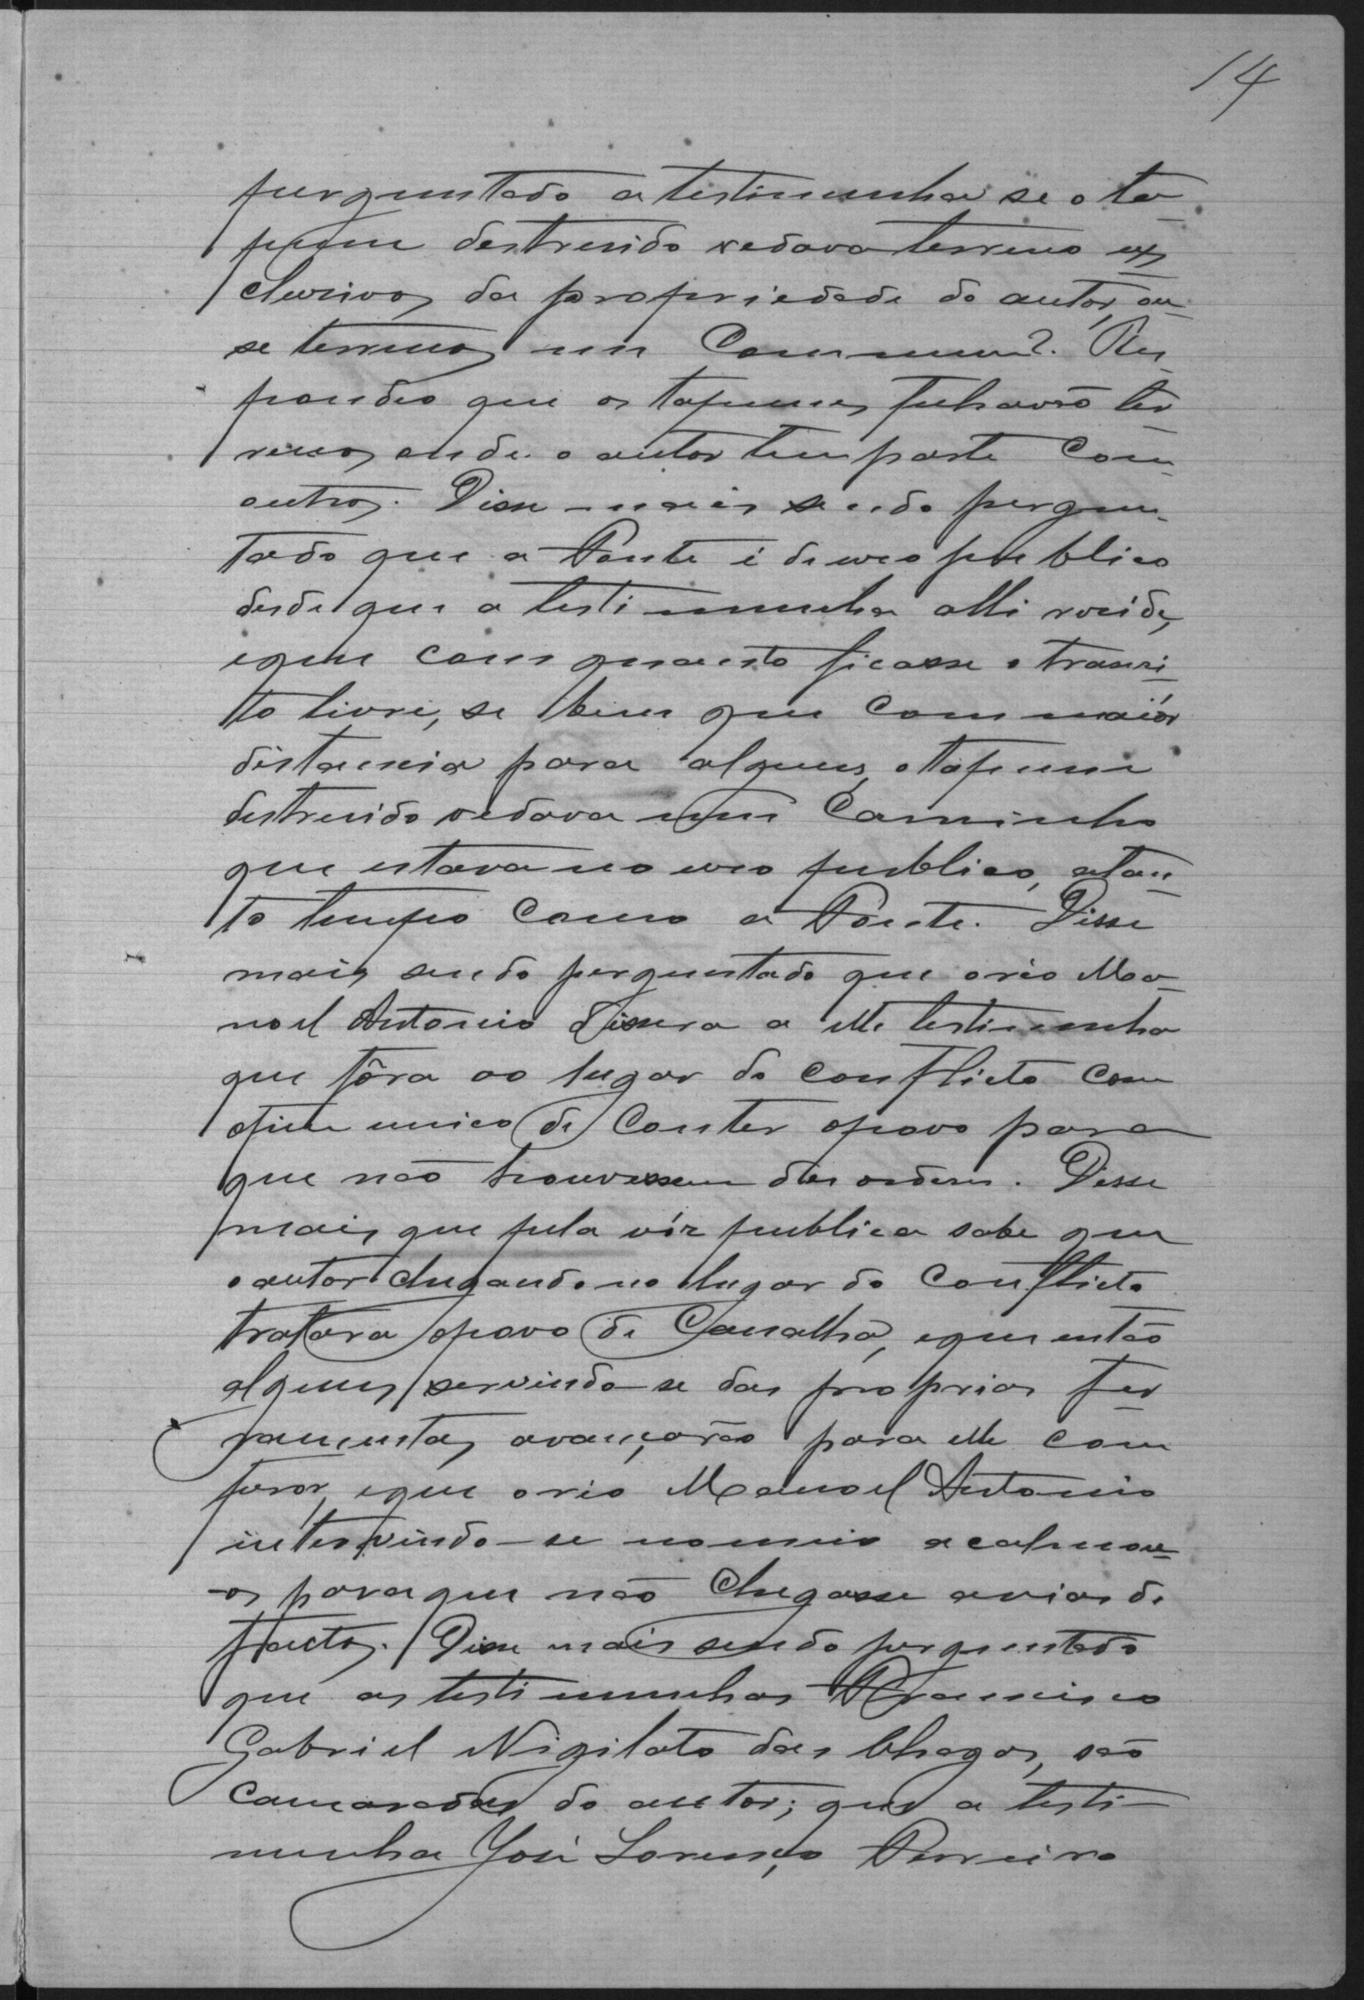 14
perguntado a testimunha se o ta-
pume destruido vedava terreno ex-
clusivos da propriedade do autor, ou
se terrenos em Commum? Res-
pondeo que os tapumes fechavão ter-
renos onde o autor tem parte Com
outros. Disse mais sendo pergun-
tado que a Ponte é de uso publico
desde que a testimunha alli reside,
e que com quanto ficasse o transi-
to livre, se bem que com maiór
distancia para alguns, o tapume
destruido vedava um Caminho
que estava no uso publico, a tan-
to tempo Como a Ponte. Disse
mais sendo perguntado que o reo Ma-
noel Antonio dissera a elle testimunha
que fôra ao lugar do conflicto com
o fim unico de Conter o povo para
que não houvessem des ordens. Disse
mais que pela vóz publica sabe que
o autor chegando no lugar do Conflicto
tratara o povo de Canalha, e que então
alguns servindo-se das proprias fer-
ramentas, avançarão para elle com
furor, e que o reo Manoel Antonio
intervindo-se no meio acalmou-
-os para que não Chegasse a vias de
factos. Disse mais sendo perguntado
que as testimunhas Francisco
Gabriel Nigilato das Chagas, são
camaradas do autor; que a testi-
munha José Lourenço Perreira